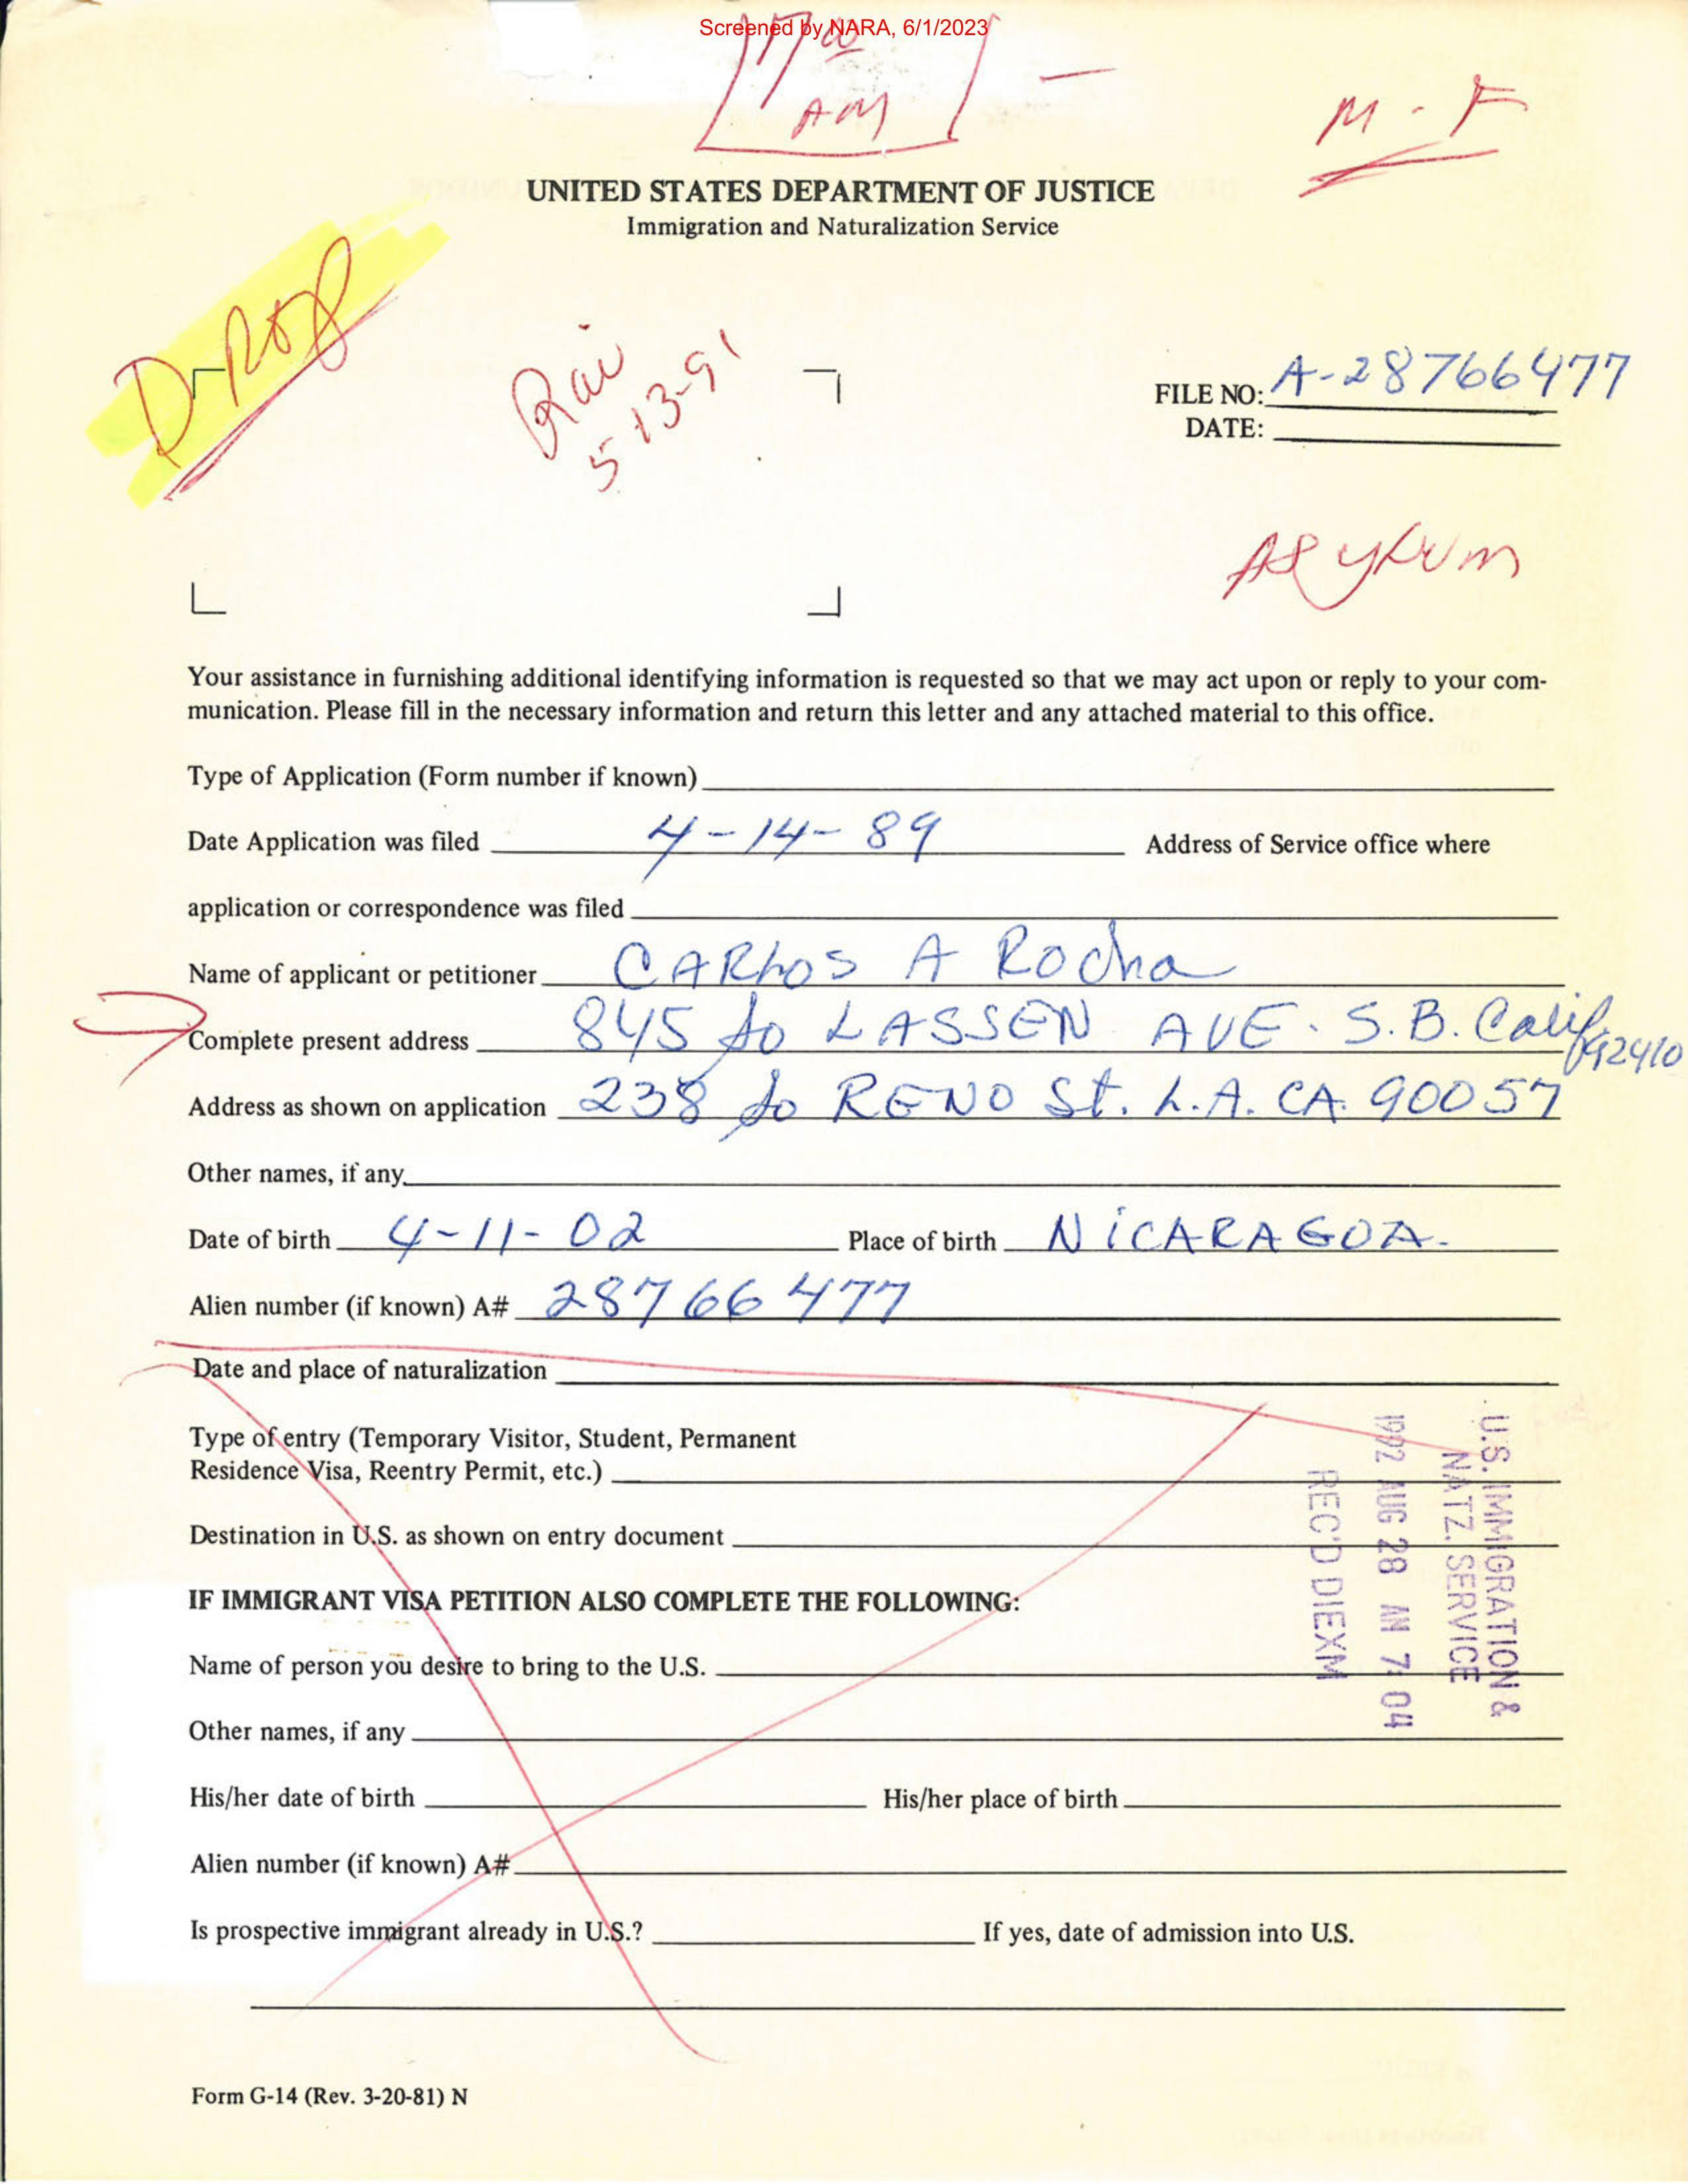 Screened by NARA, 6/1/2023
AM
M - F
UNITED STATES DEPARTMENT OF JUSTICE
Immigration and Naturalization Service
5-13-91
FILE NO: A-28766477
DATE:
Asylum
Your assistance in furnishing additional identifying information is requested so that we may act upon or reply to your com-
munication. Please fill in the necessary information and return this letter and any attached material to this office.
Type of Application (Form number if known)
Date Application was filed 4-14-89 Address of Service office where
application or correspondence was filed
Name of applicant or petitioner CARLOS A Rocha
Complete present address 845 So LASSEN AVE. S.B. Calif 92410
Address as shown on application 238 So RENO St. L.A. CA. 90057
Other names, if any
Date of birth 4-11-02 Place of birth NICARAGOA.
Alien number (if known) A# 28766477
Date and place of naturalization
Type of entry (Temporary Visitor, Student, Permanent
Residence Visa, Reentry Permit, etc.)
Destination in U.S. as shown on entry document
IF IMMIGRANT VISA PETITION ALSO COMPLETE THE FOLLOWING:
Name of person you desire to bring to the U.S.
Other names, if any
His/her date of birth His/her place of birth
Alien number (if known) A#
Is prospective immigrant already in U.S.? If yes, date of admission into U.S.
U.S. IMMIGRATION &
NATZ. SERVICE
1992 AUG 28 AM 7:04
REC'D DIEXM
Form G-14 (Rev. 3-20-81) N